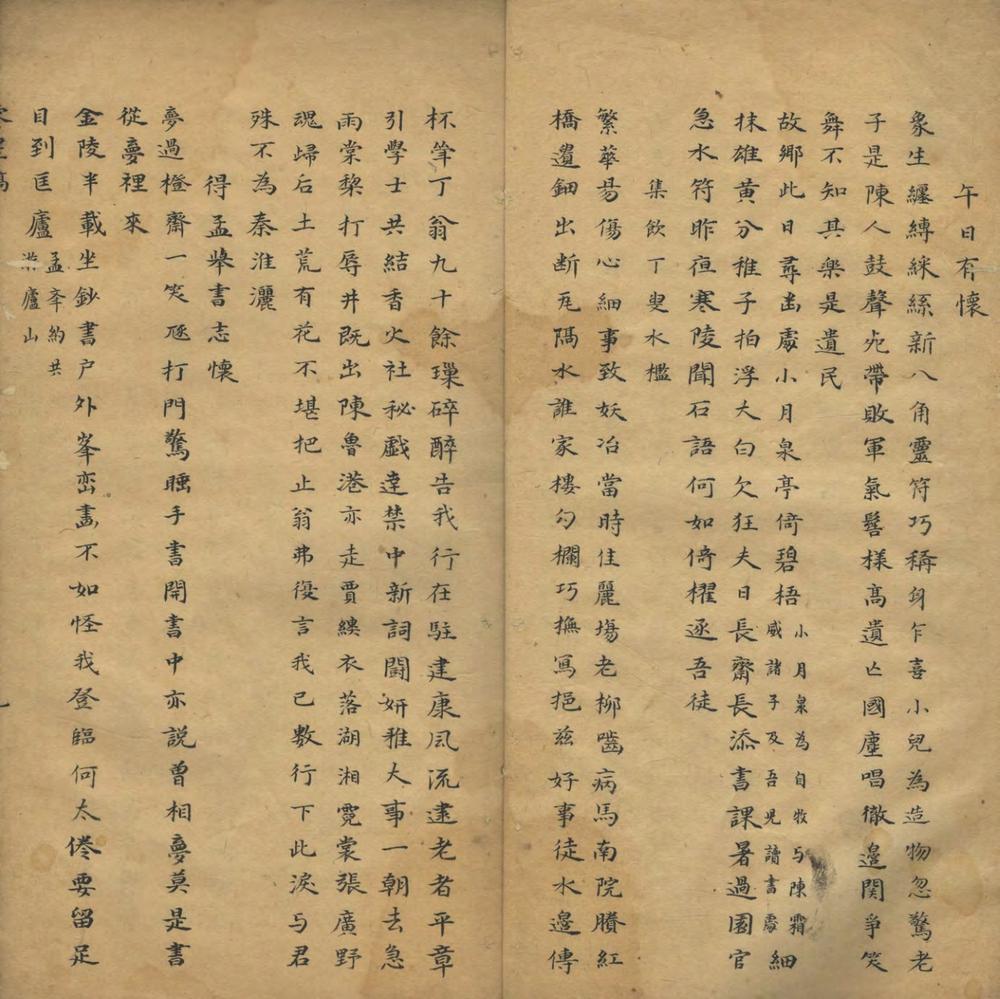 午日有懷
象生纏縛綵絲新八角靈符巧稱身乍喜小兒為造物忽驚老
子是陳人鼓聲宛帶敗軍氣髻樣高遺亡國塵唱徹邊関爭笑
舞不知其樂是遺民
故鄉此日尋幽處小月泉亭倚碧梧小月泉為自牧与陳霜威諸子及吾兒讀書處細
抹雄黃分稚子拍浮大白欠狂夫日長齋長添書課暑過園官
急水符昨夜寒陵聞石語何如倚櫂逐吾徒
集飲丁叟水檻
繁華易傷心細事致妖冶當時佳麗塲老柳嚙病馬南院賸紅
橋遺鈿出断瓦隔水誰家樓勾欄巧撫寫挹兹好事徒水邊傳
杯筆丁翁九十餘璅碎醉告我行在駐建康風流逮老者平章
引學士共結香火社秘戯達禁中新詞闘妍雅大事一朝去急
雨棠棃打辱井既出陳魯港亦走賈縷衣落湖湘霓裳張廣野
魂歸后土荒有花不堪把止翁弗復言我已數行下此淚与君
殊不為秦淮灑
得孟峷書志懷
夢過橙齋一笑𢌞打門驚睡手書開書中亦說曾相夢莫是書
從夢裡來
金陵半載坐鈔書户外峯巒畫不如怪我登臨何太倦要留足
目到匡廬孟峷約共遊廬山